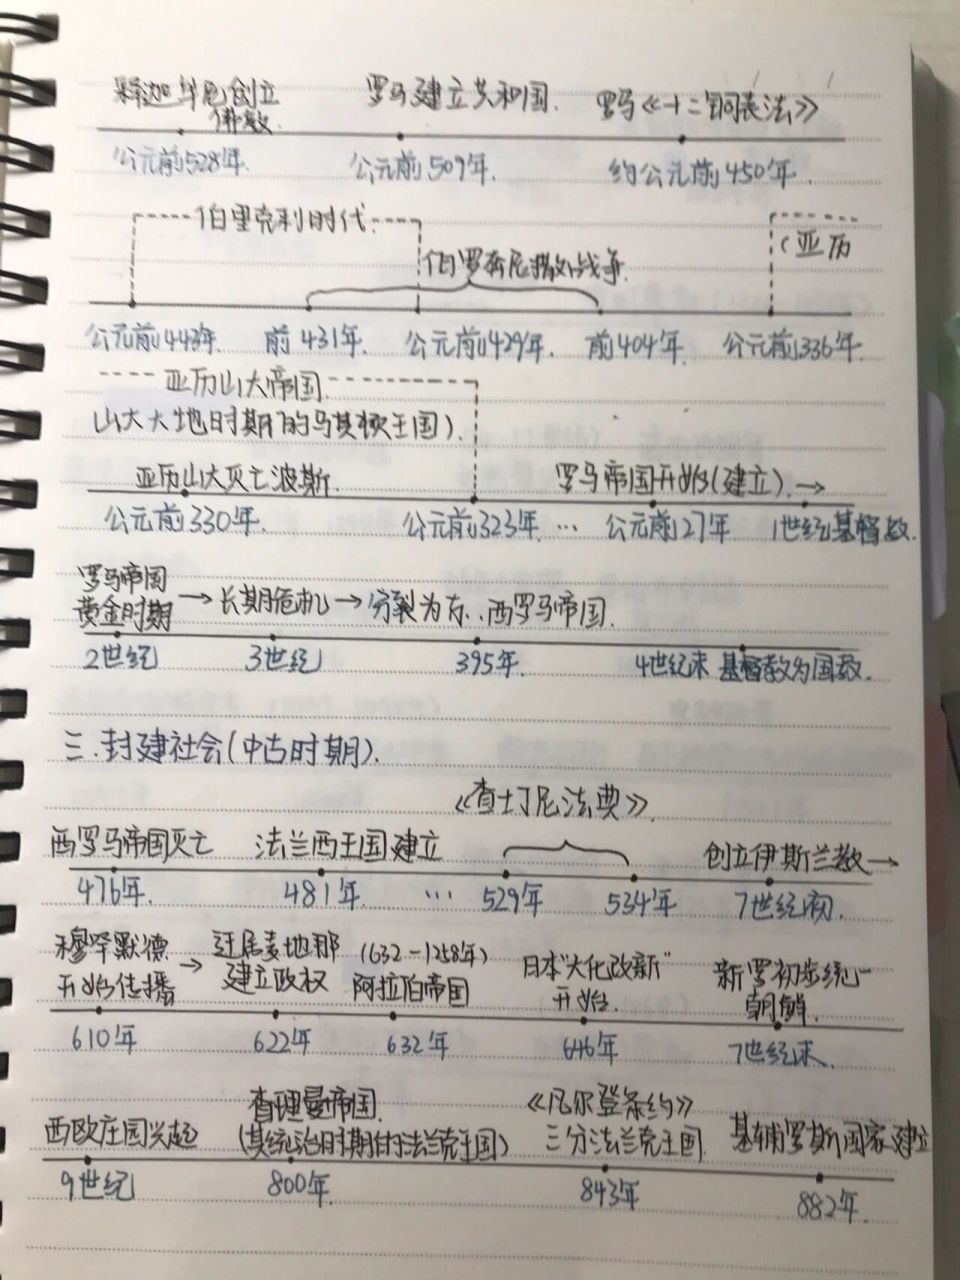 释迦牟尼创立 罗马建立共和国. 罗马《十二铜表法》
佛教.
公元前528年. 公元前509年. 约公元前450年.
伯里克利时代.
(亚历
伯罗奔尼撒战争.
公元前443年 前431年. 公元前429年. 前404年. 公元前336年.
亚历山大帝国.
山大大地时期的马其顿王国).
亚历山大灭亡波斯. 罗马帝国开始(建立). →
公元前330年. 公元前323年. … 公元前27年 1世纪基督教.
罗马帝国
黄金时期 → 长期危机 → 分裂为东、西罗马帝国.
2世纪 3世纪 395年. 4世纪末 基督教为国教.
三.封建社会(中古时期).
《查士丁尼法典》.
西罗马帝国灭亡 法兰西王国建立 创立伊斯兰教→
476年. 481年. … 529年 534年 7世纪初.
穆罕默德 → 迁居麦地那 (632-1258年) 日本"大化改新" 新罗初步统一
开始传播 建立政权 阿拉伯帝国 开始. 朝鲜.
610年 622年 632年 646年 7世纪末.
查理曼帝国. 《凡尔登条约》
西欧庄园兴起 (其统治时期的法兰克王国) 三分法兰克王国. 基辅罗斯国家建立
9世纪 800年. 843年 882年.